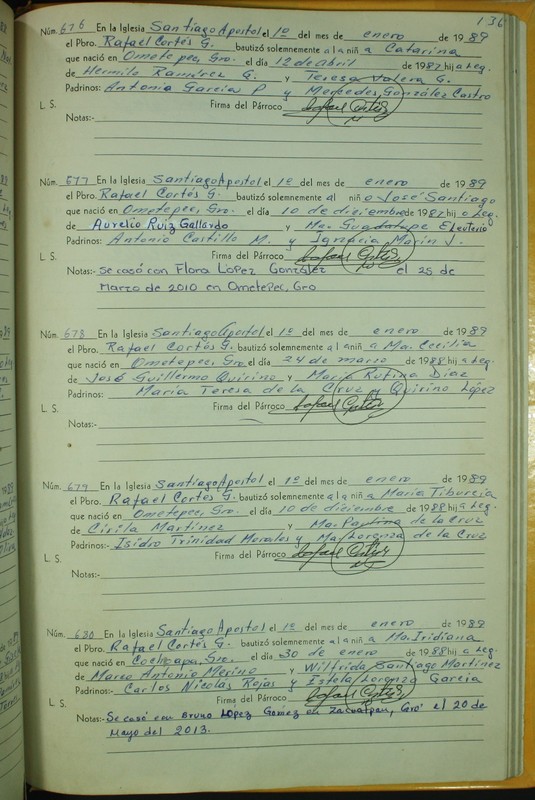 136
Núm. 676 En la Iglesia Santiago Apostol el 1º del mes de enero de 1989
el Pbro. Rafael Cortés G. bautizó solemnemente a l a niñ a Catarina
que nació en Ometepec, Gro. el día 12 de Abril de 1987 hij a Leg.
de Hermilo Ramírez G. y Teresa Valera G.
Padrinos: Antonia Garcia P y Mercedes González Castro
L. S. Firma del Párroco Rafael Cortés
Notas:-
Núm. 677 En la Iglesia Santiago Apostol el 1º del mes de enero de 1989
el Pbro. Rafael Cortés G. bautizó solemnemente al niñ o José Santiago
que nació en Ometepec, Gro. el día 10 de diciembre de 1987 hij o Leg.
de Aurelio Ruiz Gallardo y Ma. Guadalupe Eleuterio
Padrinos: Antonio Castillo M. y Ignacia Marin J.
L. S. Firma del Párroco Rafael Cortés
Notas:- Se casó con Flora López González el 25 de
Marzo de 2010 en Ometepec, Gro
Núm. 678 En la Iglesia Santiago Apostol el 1º del mes de enero de 1989
el Pbro. Rafael Cortés G. bautizó solemnemente a l a niñ a Ma. Cecilia
que nació en Ometepec, Gro. el día 24 de marzo de 1988 hij a Leg.
de José Guillermo Quirino y María Rufina Díaz
Padrinos: María Teresa de la Cruz y Quirino López
L. S. Firma del Párroco Rafael Cortés
Notas:-
Núm. 679 En la Iglesia Santiago Apostol el 1º del mes de enero de 1989
el Pbro. Rafael Cortés G. bautizó solemnemente a l a niñ a María Tiburcia
que nació en Ometepec, Gro. el día 10 de diciembre de 1988 hij a Leg.
de Cirila Martínez y Ma. Paulina de la Cruz
Padrinos:- Isidro Trinidad Morales y Ma. Lorenza de la Cruz
L. S. Firma del Párroco Rafael Cortés
Notas:-
Núm. 680 En la Iglesia Santiago Apostol el 1º del mes de enero de 1989
el Pbro. Rafael Cortés G. bautizó solemnemente a l a niñ a Ma. Iridiana
que nació en Cochoapa, Gro. el día 30 de enero de 1988 hij a Leg.
de Marco Antonio Merino y Wilfrida Santiago Martínez
Padrinos:- Carlos Nicolás Rojas y Estela Lorenza Garcia
L. S. Firma del Párroco Rafael Cortés
Notas:- Se casó con Bruno López Gomez en Zacualpan, Gro el 20 de
Mayo del 2013.